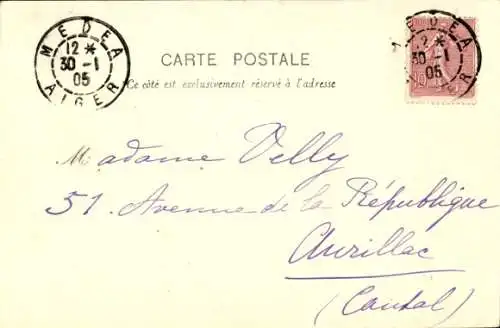 MEDEA
12 *
30 -1
05
ALGER
MEDEA
12 *
30 -1
05
10
CARTE POSTALE
Ce côté est exclusivement réservé à l'adresse
Madame Delly
51 Avenue de la République
Aurillac
(Cantal)